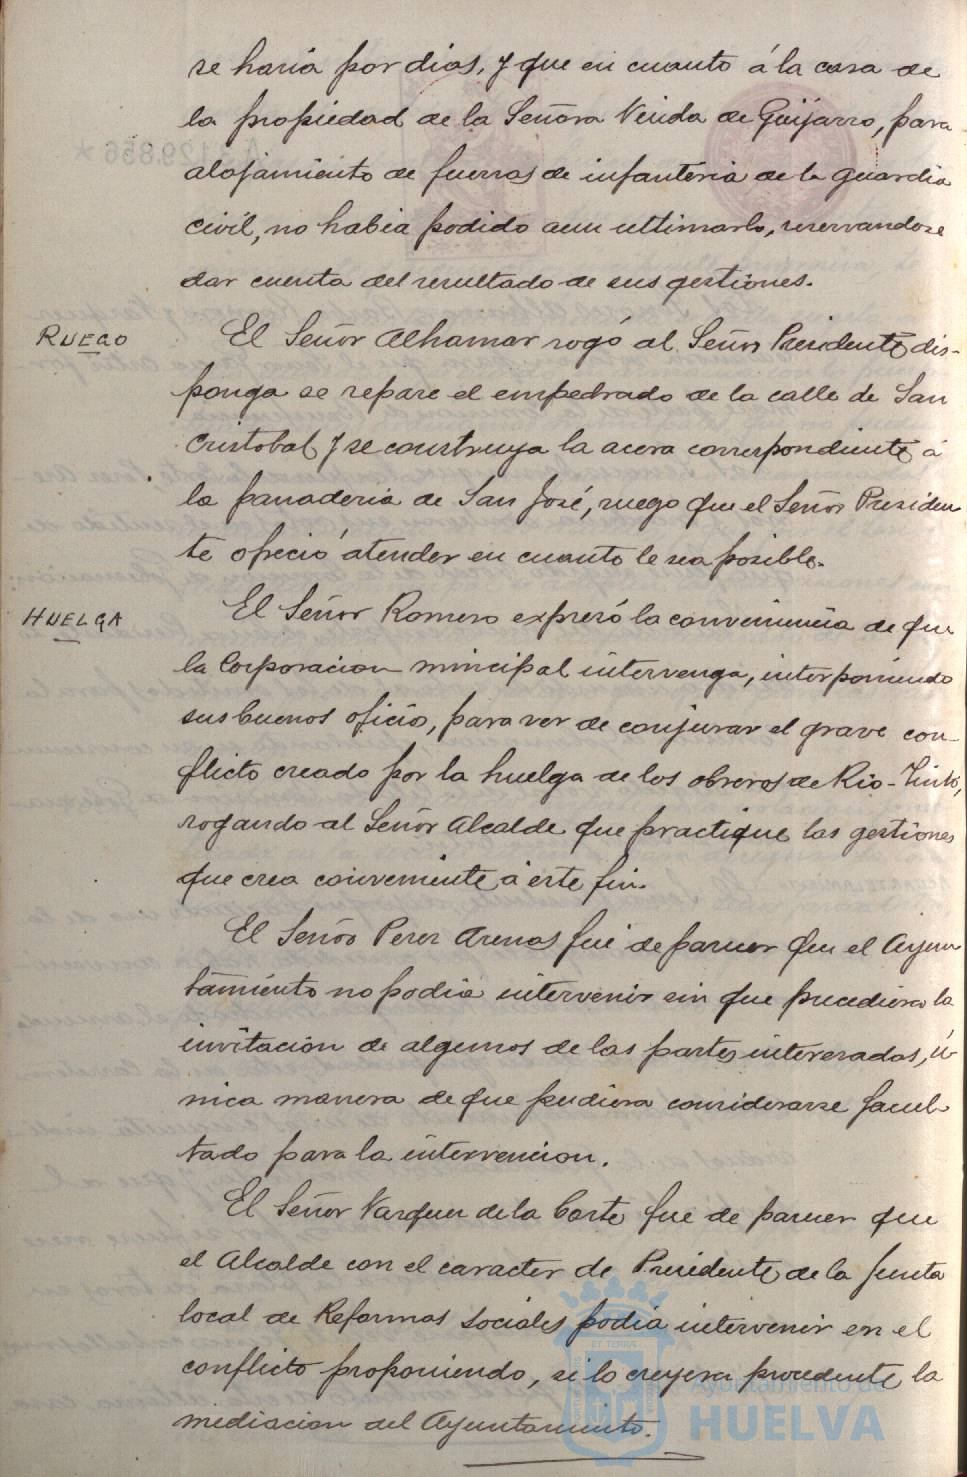 se haria por dias, y que en cuanto á la casa de
la propiedad de la Señora Viuda de Guijarro, para
alojamiento de fuerzas de infanteria de la guardia
civil, no habia podido aun ultimarlo, reservandose
dar cuenta del resultado de sus gestiones.
RUEGO
El Señor Alhamar rogó al Señor Presidente dis-
ponga se repare el empedrado de la calle de San
Cristobal y se construya la acera correspondiente á
la panaderia de San José, ruego que el Señor Presiden
te ofreció atender en cuanto le sea posible.
HUELGA
El Señor Romero expresó la conveniencia de que
la Corporacion municipal intervenga, interponiendo
sus buenos oficios, para ver de conjurar el grave con-
flicto creado por la huelga de los obreros de Rio-Tinto,
rogando al Señor Alcalde que practique las gestiones
que crea conveniente á este fin.
El Señor Perez Arenas fué de parecer que el Ayun
tamiento no podia intervenir sin que precediera la
invitacion de algunos de las partes interesadas, ú-
nica manera de que pudiera considerarse facul-
tado para la intervencion.
El Señor Vazquez de la Corte fue de parecer que
el Alcalde con el caracter de Presidente de la Junta
local de Reformas Sociales podia intervenir en el
conflicto proponiendo, si lo creyera procedente la
mediacion del Ayuntamiento.
Ayuntamiento de
HUELVA